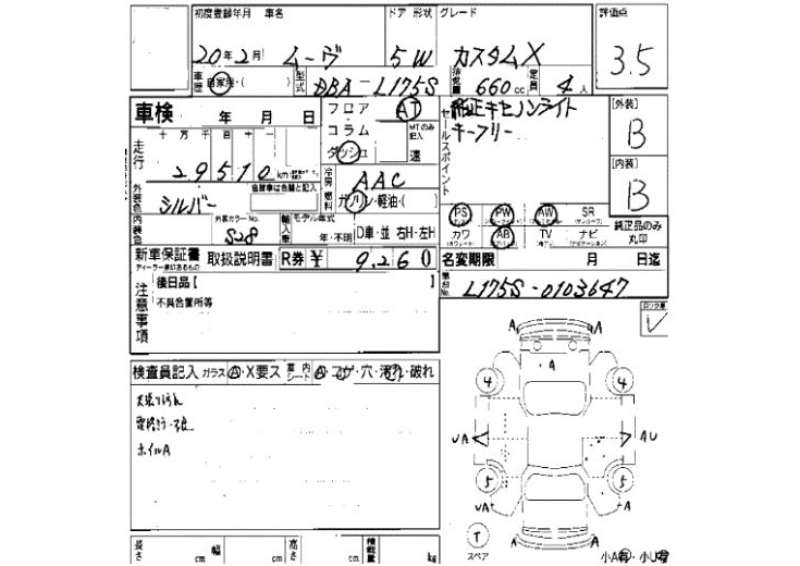 初度登録年月 車名 ドア 形状 グレード 評価点
20年2月 ムーヴ 5 W カスタムX 3.5
車歴 自家用・( ) 型式 DBA-L175S 排気量 660cc 定員 4人
車検 年 月 日 フロア AT 純正キセノンライト [外装]
コラム MTのみ記入 セールスポイント キーフリー B
十 万 千 百 十 一 ダッシュ 速
走行 29510 km 冷房 AAC [内装]
外装色 シルバー 色替車は色籍と記入 燃料 ガソリン・軽油・( ) B
内装色 外装カラーNo. S28 輸入車 モデル年式 年・不明 D車・並 右H・左H
PS PW AW SR 純正品のみ丸印
カワ AB TV ナビ
新車保証書 取扱説明書 R券 ¥ 9,260 名変期限 月 日迄
ディーラー印のあるもの
注意事項 後日品【 】 車台No. L175S-0103647
不具合箇所等
検査員記入 ガラス A・X要ス 室内シート A・コゲ・穴・汚れ・破れ
ホイルA
A A
A
4 4
UA AU
5 5
UA A
T
スペア A A
小A有・小U有
長さ cm 幅 cm 高さ cm 積載量 kg